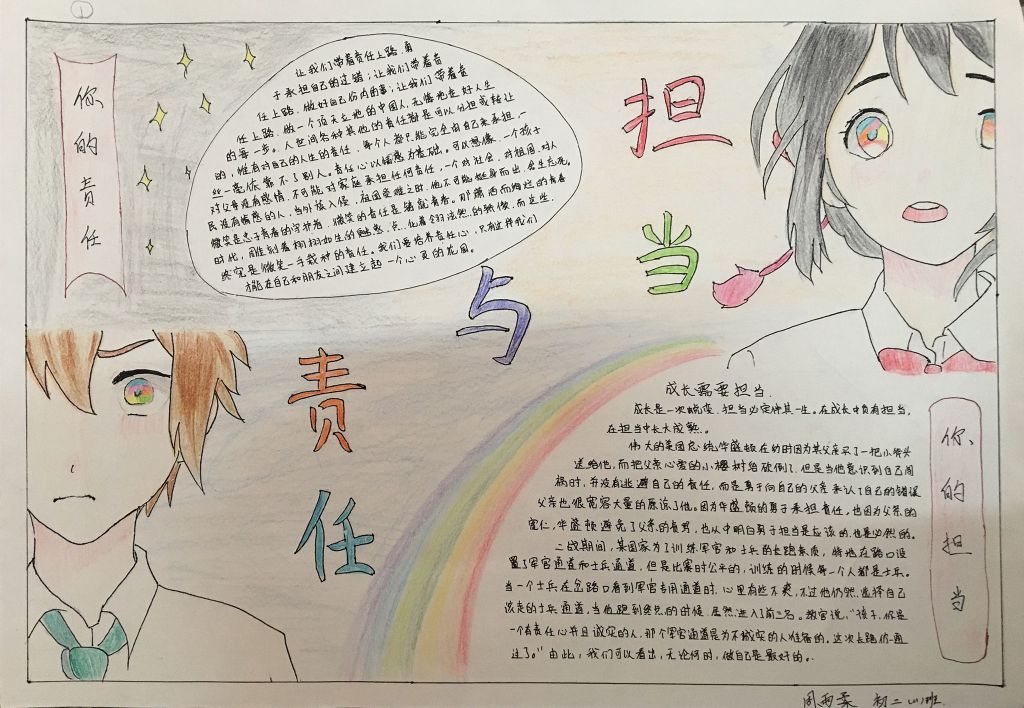 ①
你的责任
让我们带着责任上路,勇
于承担自己的过错;让我们带着责
任上路,做好自己份内的事;让我们带着责
任上路,做一个顶天立地的中国人,无愧地走好人生
的每一步。人世间各种其他的责任都是可以分担或转让
的,惟有对自己的人生的责任,每个人都只能完全由自己来承担,一
些一毫依靠不了别人。责任心以情感为基础。可以想像,一个孩子
对父母没有感情,不可能对家庭承担任何责任,一个对社会,对祖国,对人
民没有情感的人,当外族入侵,祖国受难之时,他不可能挺身而出,舍生忘死。
微笑是忠于青春的守护者,微笑的责任是铸就青春。那潇洒而绚烂的青春
时代,雕刻着栩栩如生的魅惑
终究是微笑一手栽种的责任。我们要培养责任心,只有这样我们
才能在自己和朋友之间建立起一个心灵的花园。
担
当
与
责
任
成长需要担当.
成长是一次蜕变,担当必定伴其一生。在成长中负有担当,
在担当中长大成熟。
伟大的美国总统华盛顿在幼时因为其父亲买了一把小斧头
送给他,而把父亲心爱的小樱树给砍倒了,但是当他意识到自己闯
祸时,并没有逃避自己的责任,而是勇于向自己的父亲承认了自己的错误
父亲也很宽容大量的原谅了他。因为华盛顿的勇于承担责任,也因为父亲的
宽仁,华盛顿避免了父亲的责骂,也从中明白勇于担当是应该的,也是必然的。
二战期间,某国家为了训练军官和士兵的长跑素质,特地在路口设
置了军官通道和士兵通道,但是比赛时公平的,训练的时候每一个人都是士兵。
当一个士兵在岔路口看到军官专用通道时,心里有些不爽,不过他仍然选择自己
该走的士兵通道,当他跑到终点的时候,居然进入了前三名。教官说,“孩子,你是
一个有责任心并且诚实的人,那个军官通道是为不诚实的人准备的。这次长跑你通
过了。”由此,我们可以看出,无论何时,做自己是最好的。
你的担当
周雨柔 初二(1)班